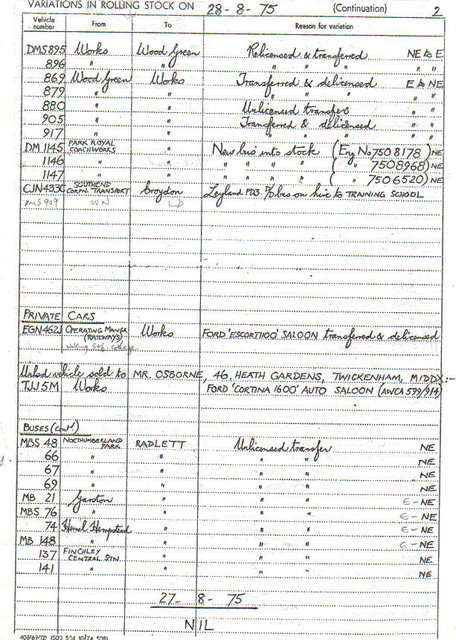 VARIATIONS IN ROLLING STOCK ON 28-8-75 (Continuation) 2
Vehicle number From To Reason for variation
DMS895 Works Wood Green Relicensed & transferred NE to E
896 " " " " " "
869 Wood Green Works Transferred & delicensed E to NE
879 " " " " " "
880 " " Unlicensed transfer " "
905 " " Transferred & delicensed " "
917 " " " " " "
DM 1145 PARK ROYAL COACHWORKS " New bus into stock (Eng No 7508178) NE
1146 " " " " " " ( " 7508968) NE
1147 " " " " " " ( " 7506520) NE
CJN433C SOUTHEND CORPN. TRANSPORT Croydon Leyland PD3 D/D bus on hire to TRAINING SCHOOL
DMS 909 WN
PRIVATE CARS
EGN462J OPERATING MANGR (RAILWAYS) Works FORD 'ESCORT 1100' SALOON transferred & delicensed
Unlicd vehicle sold to MR. OSBORNE, 46, HEATH GARDENS, TWICKENHAM, MIDDX:-
TJJ 5M Works FORD 'CORTINA 1600' AUTO SALOON (AWCA 599/914)
BUSES (contd)
MBS 48 NORTHUMBERLAND PARK RADLETT Unlicensed transfer NE
66 " " " " NE
67 " " " " NE
69 " " " " NE
MB 21 Garston " " " E - NE
MBS 76 " " " " E - NE
74 Hemel Hempstead " " " E - NE
MB 148 " " " " E - NE
137 FINCHLEY CENTRAL STN. " " " NE
141 " " " " NE
27 - 8 - 75
NIL